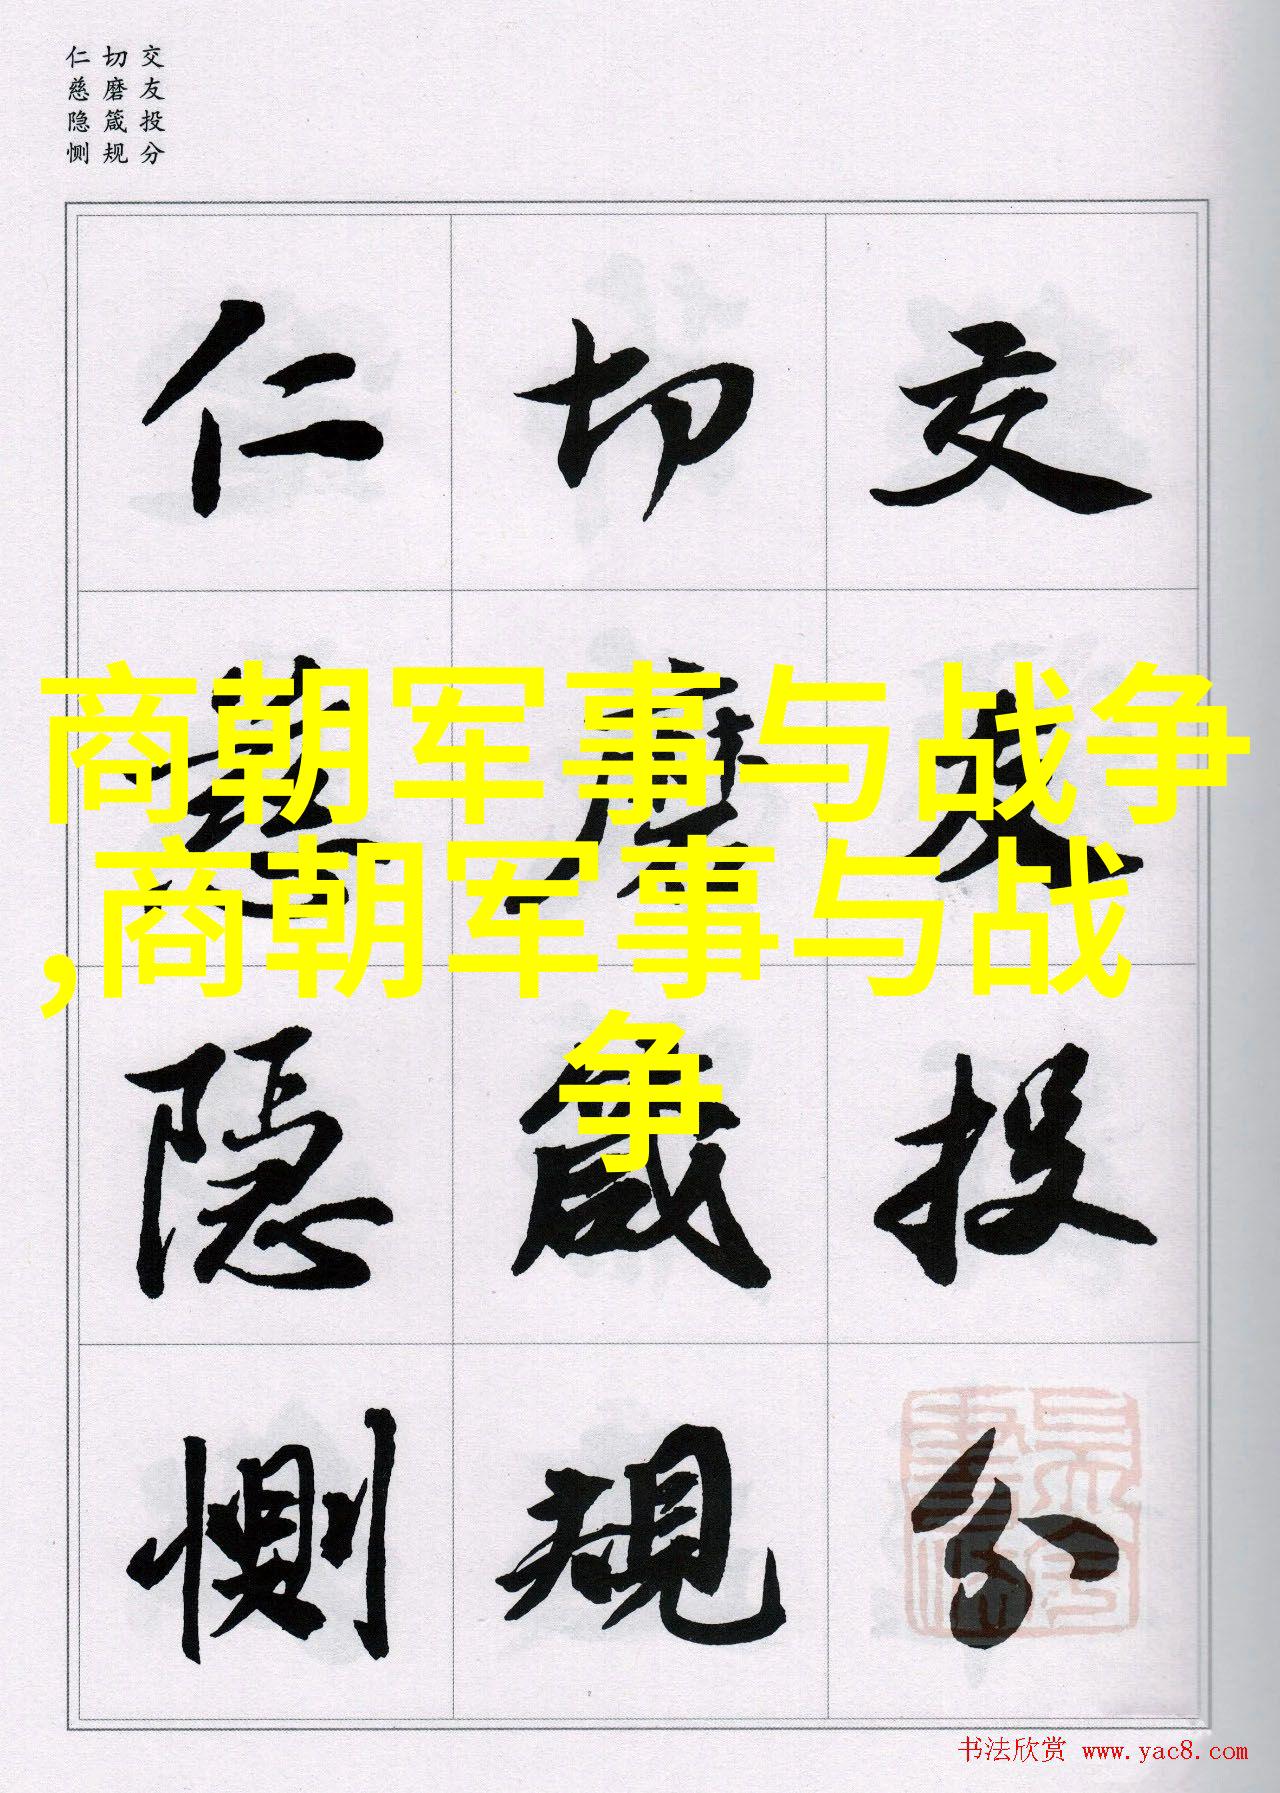 交友投分
切磨箴规
仁慈隐恻
交友投分
切磨箴規
仁慈隐恻
商朝军事与战争
,商朝军事与战
争
书法欣赏 www.yac8.com